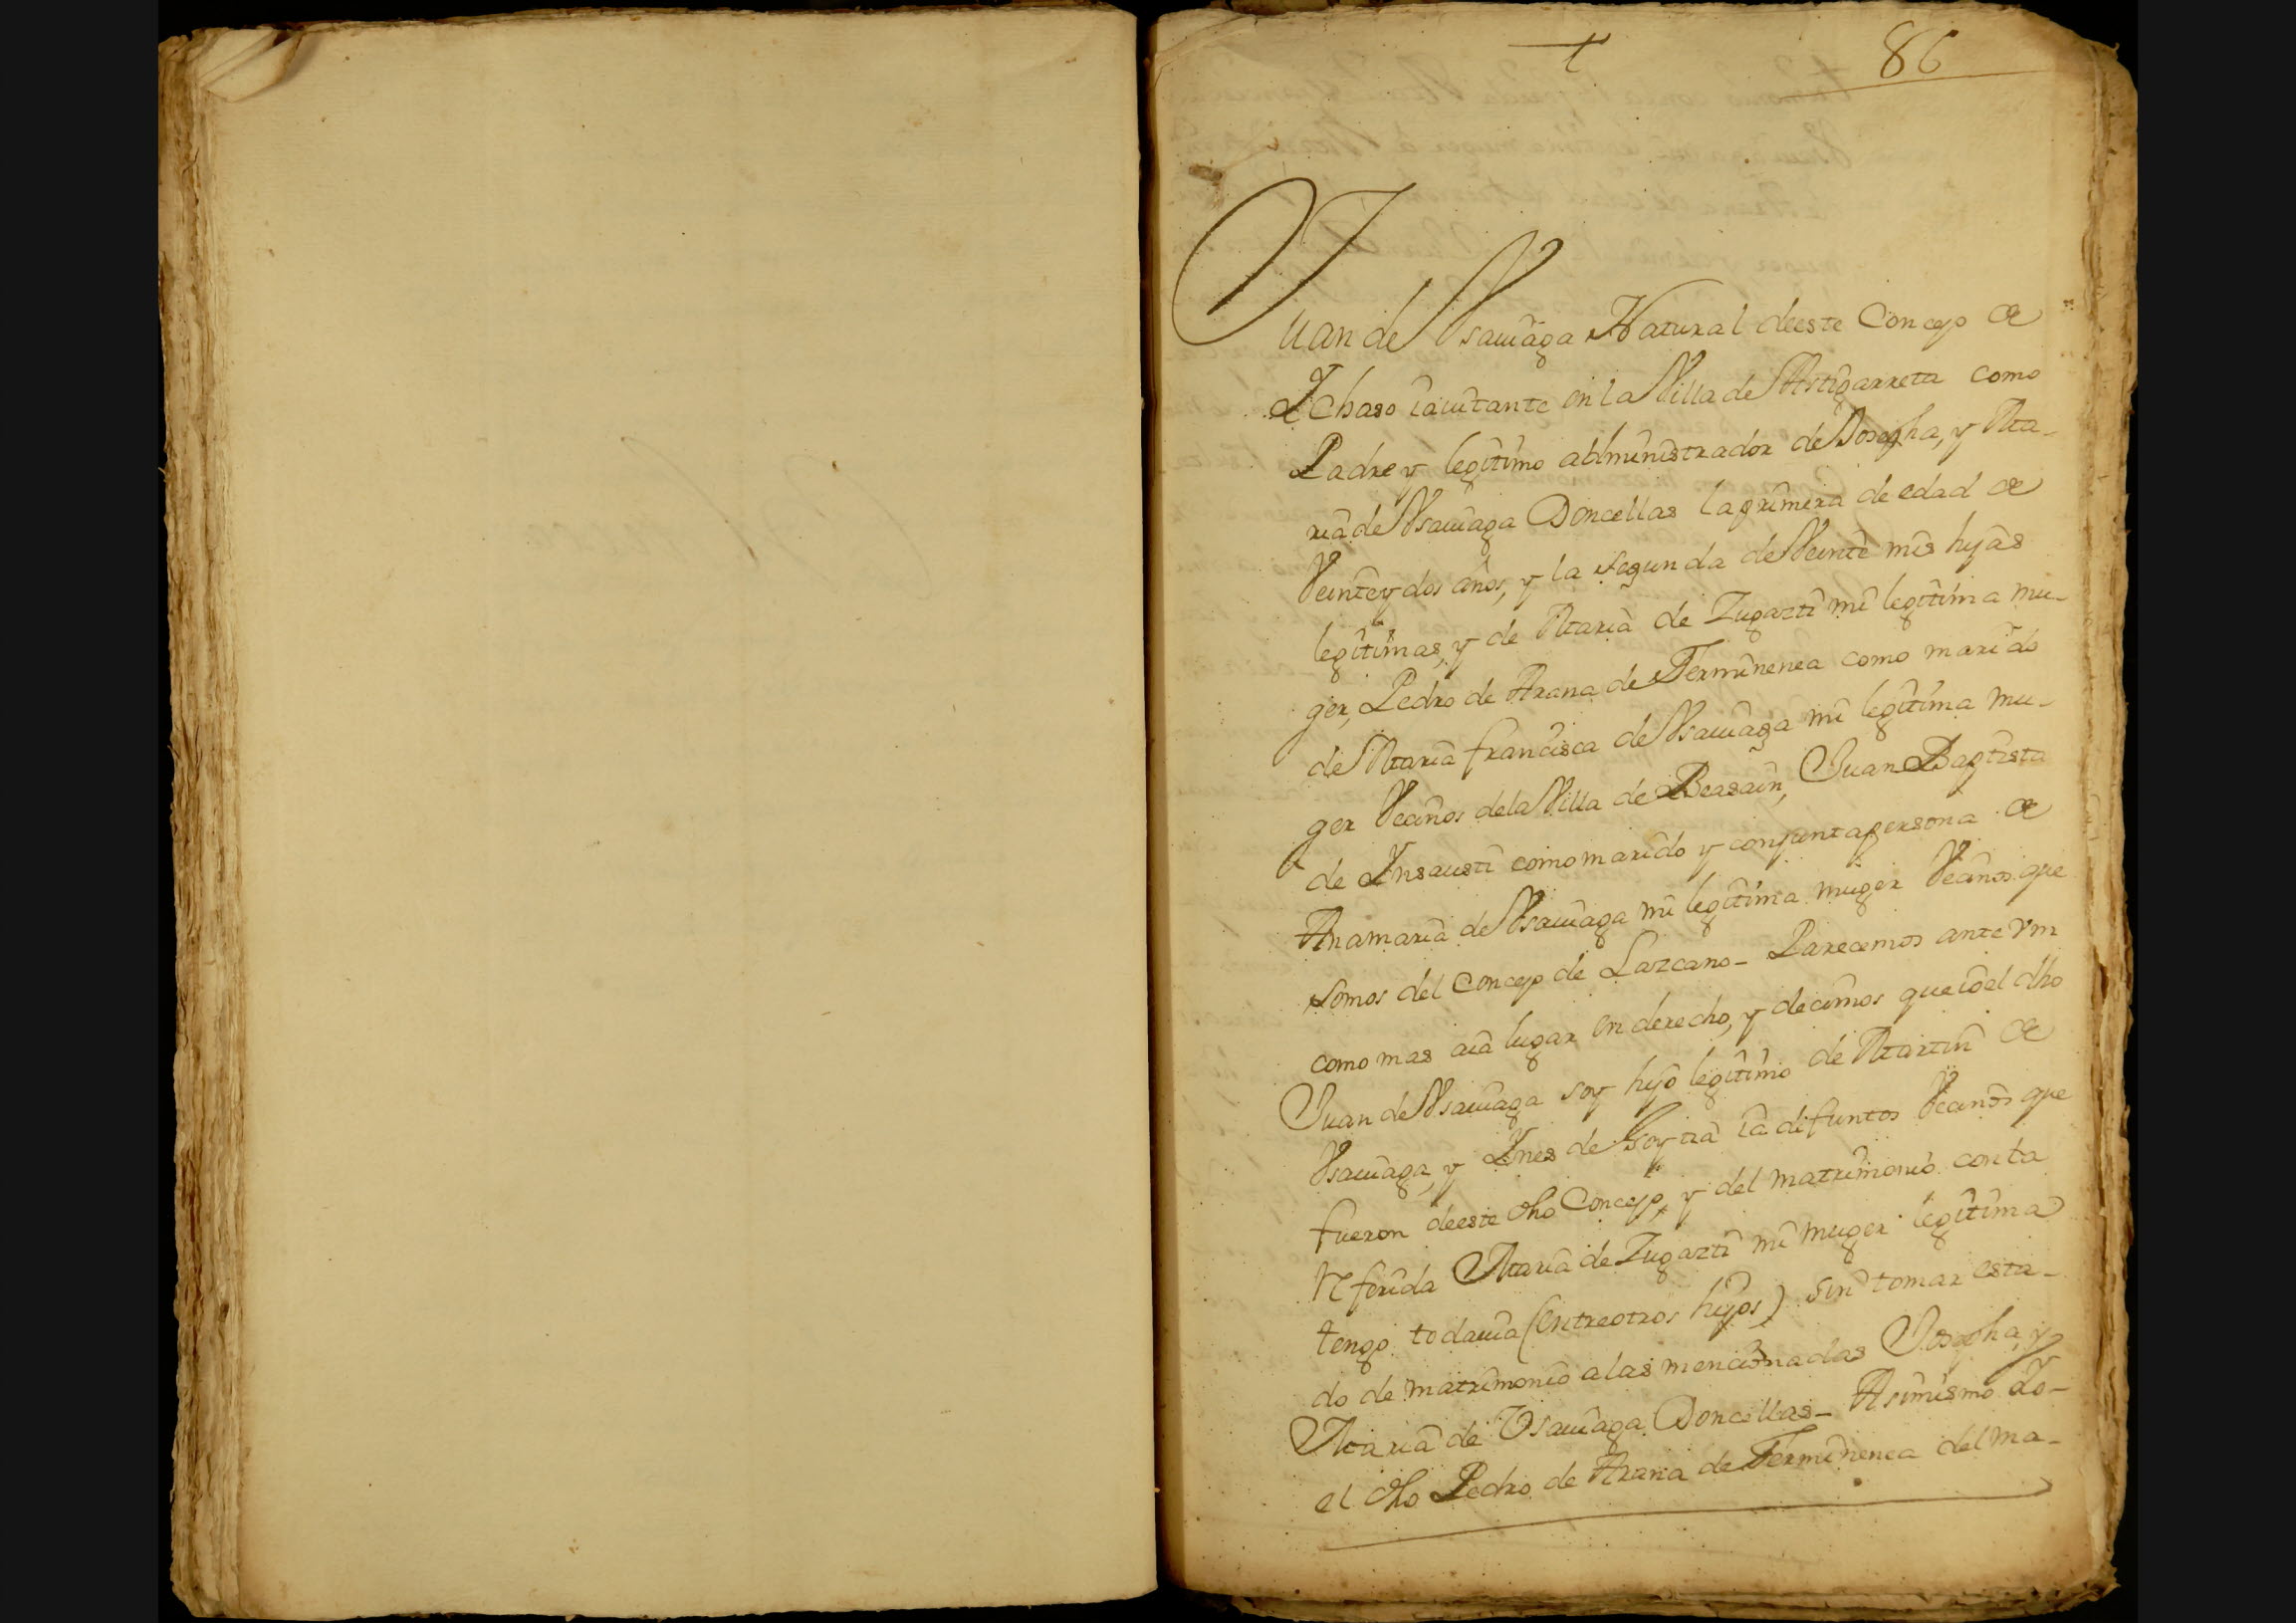 86
Juan de Vsauiaga Natural deeste Concejo de
Ychaso iauitante en la Villa de Astigarreta como
Padre y legitimo abministrador de Josepha, y Ma-
ria de Vsauiaga Doncellas la primera de edad de
Veinte y dos años, y la segunda de Veinte mis hijas
legitimas, y de Maria de Zugazti mi legitima mu-
ger, Pedro de Arana de Terminenea como marido
de Maria francisca de Vsauiaga mi legitima mu-
ger Vecinos dela Villa de Beasain, Juan Baptista
de Ynsausti como marido y conjunta persona de
Anamaria de Vsauiaga mi legitima muger Vecinos que
somos del Concejo de Lazcano - Parecemos ante Vm
como mas aia lugar en derecho, y decimos que io el dho
Juan de Vsauiaga soy hijo legitimo de Martin de
Vsauiaga, y Ynes de Goytia ia difuntos Vecinos que
fueron deeste dho Concejo, y del matrimonio con la
Referida Maria de Zugazti mi muger legitima
tengo todauia (entre otros hijos) sin tomar esta-
do de matrimonio a las mencionadas Josepha, y
Maria de Vsauiaga Doncellas - Asimismo Io-
el dho Pedro de Arana de Terminenea del ma-